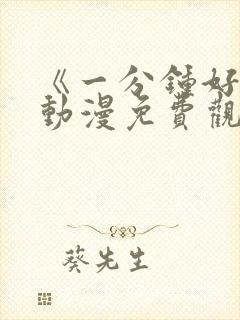 《一分鐘好
動漫免費觀
葵先生